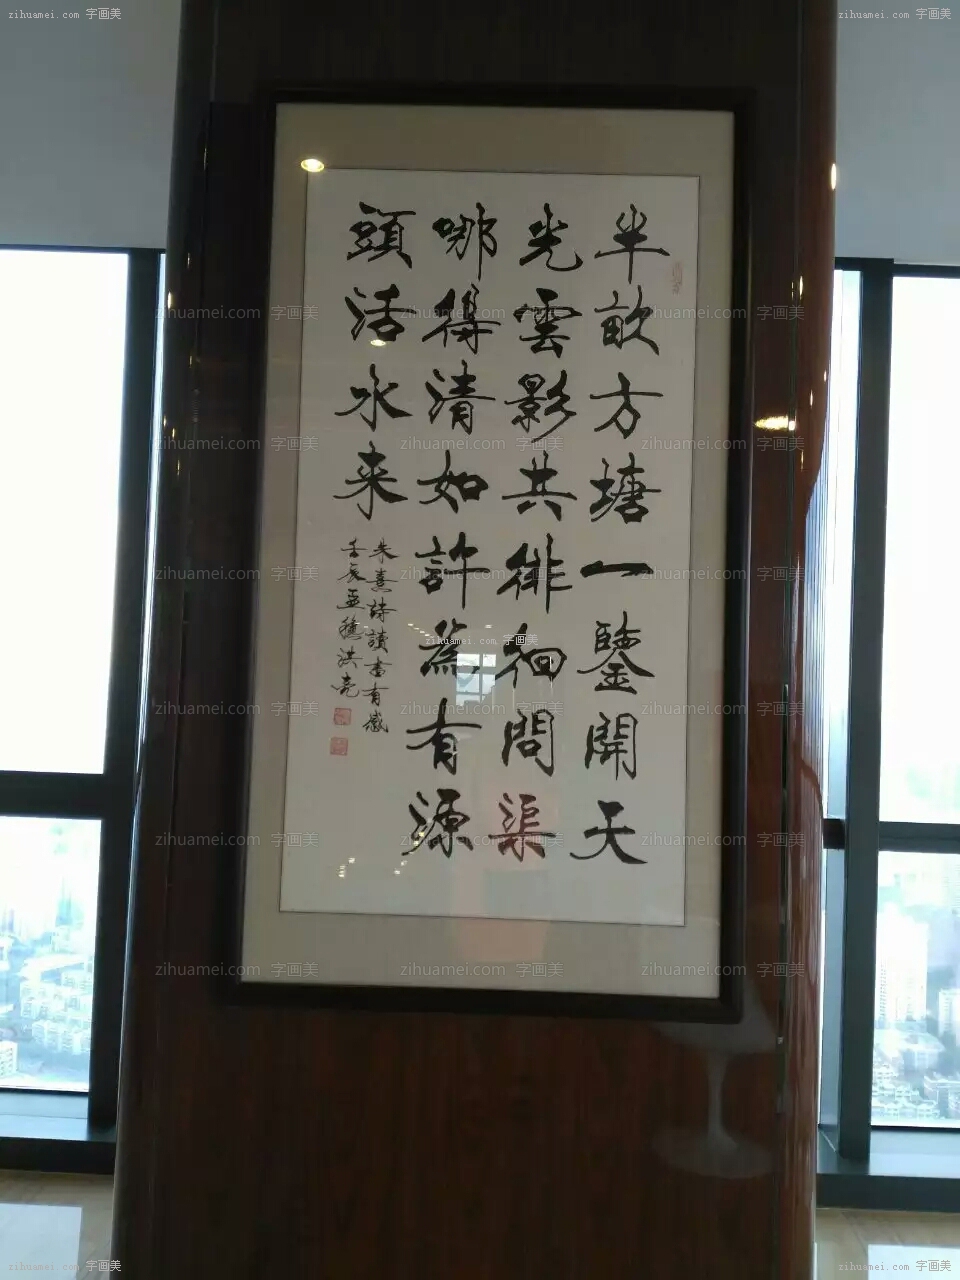 半畝方塘一鑒開天
光雲影共徘徊問渠
哪得清如許為有源
頭活水来
朱熹詩讀書有感
壬辰孟穐洪亮
zihuamei.com 字画美